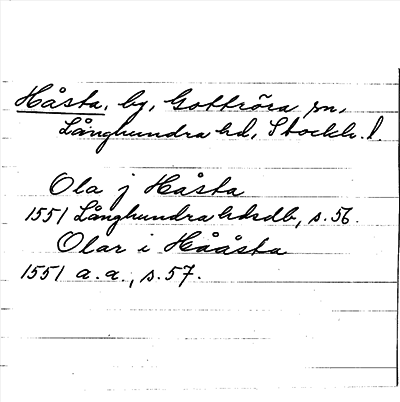 Håsta, by, Gottröra sn,
Långhundra hd, Stockh. l.
Ola j Håsta
1551 Långhundra hdsdb, s. 56.
Olar i Hååsta
1551 a. a., s. 57.